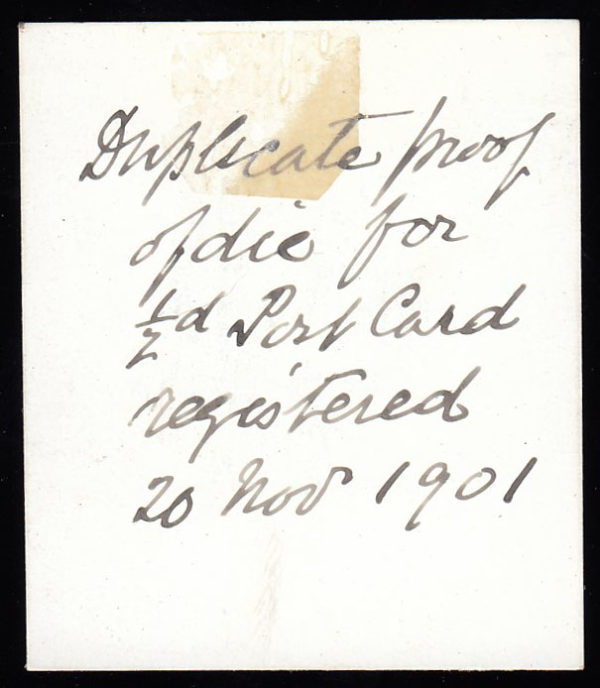 Duplicate proof
of die for
½d Post Card
registered
20 Nov 1901